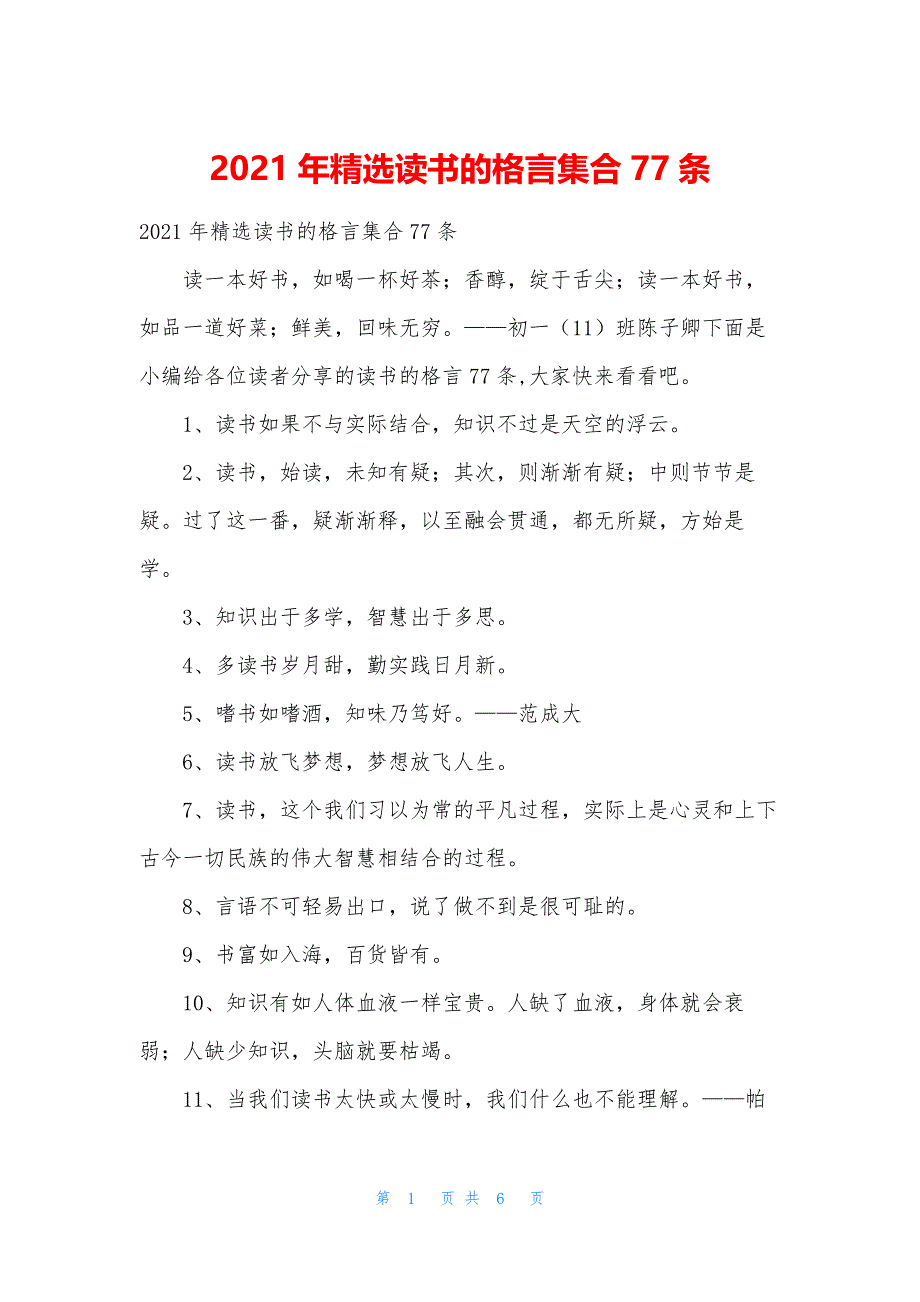 2021 年精选读书的格言集合 77 条
2021 年精选读书的格言集合 77 条
读一本好书，如喝一杯好茶；香醇，绽于舌尖；读一本好书，
如品一道好菜；鲜美，回味无穷。——初一（11）班陈子卿下面是
小编给各位读者分享的读书的格言 77 条,大家快来看看吧。
1、读书如果不与实际结合，知识不过是天空的浮云。
2、读书，始读，未知有疑；其次，则渐渐有疑；中则节节是
疑。过了这一番，疑渐渐释，以至融会贯通，都无所疑，方始是
学。
3、知识出于多学，智慧出于多思。
4、多读书岁月甜，勤实践日月新。
5、嗜书如嗜酒，知味乃笃好。——范成大
6、读书放飞梦想，梦想放飞人生。
7、读书，这个我们习以为常的平凡过程，实际上是心灵和上下
古今一切民族的伟大智慧相结合的过程。
8、言语不可轻易出口，说了做不到是很可耻的。
9、书富如入海，百货皆有。
10、知识有如人体血液一样宝贵。人缺了血液，身体就会衰
弱；人缺少知识，头脑就要枯竭。
11、当我们读书太快或太慢时，我们什么也不能理解。——帕
第 1 页 共 6 页